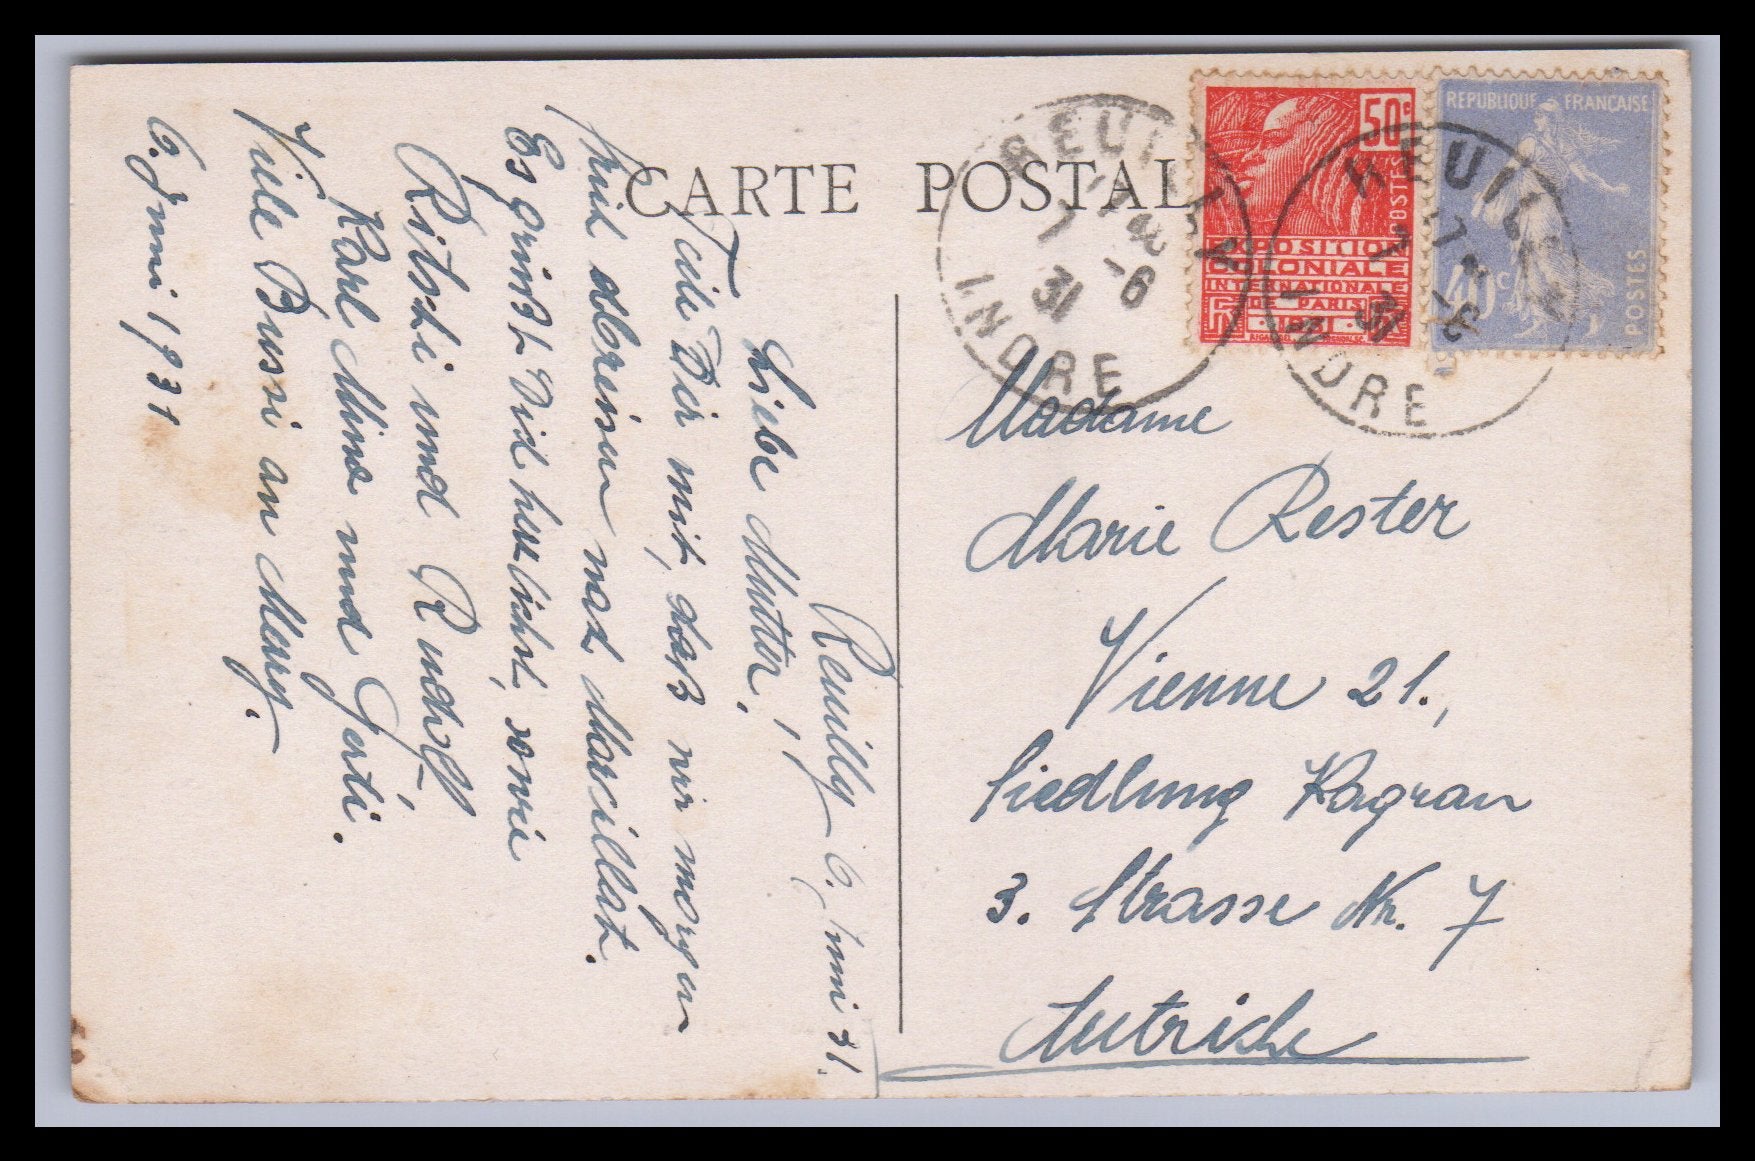 CARTE POSTALE
REUILLY
17 45
7 -6
31
INDRE
50c
POSTES
EXPOSITION
COLONIALE
INTERNATIONALE
DE PARIS
RF 1931 RF
REPUBLIQUE FRANCAISE
40c
POSTES
REUILLY
17
7 -6
31
INDRE
Reuilly 6. Juni 31.
Liebe Mutter!
Teile Dir mit, daß wir morgen
abreisen nach Marseille.
Es grüßt Dich herzlichst, sowie
Ritschi und Rudolf
Karl Mina und Gerti.
Viele Bussi an
6. Juni 1931
Madame
Marie Rester
Vienne 21.,
Siedlung Kagran
3. Strasse Nr. 7
Autriche